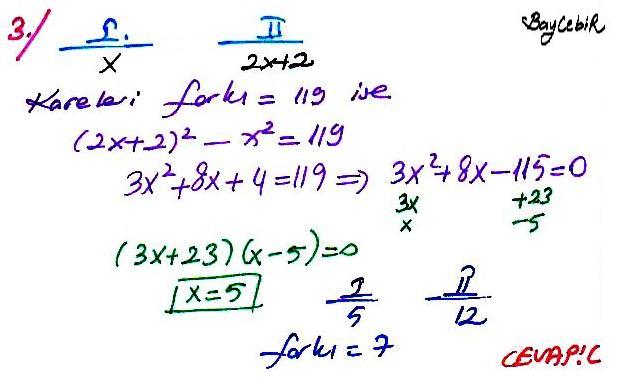 3./ I. II BayCebiR
x 2x+2
Kareleri farkı = 119 ise
(2x+2)² − x² = 119
3x²+8x+4=119 ⇒ 3x²+8x−115=0
3x +23
x −5
(3x+23)(x−5)=0
x=5 I II
5 12
farkı = 7 CEVAP:C